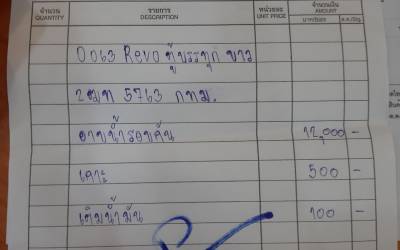 จำนวน รายการ หน่วยละ จำนวนเงิน
QUANTITY DESCRIPTION UNIT PRICE AMOUNT
บาท/Baht ส.ต./Stg.
0063 Revo ตู้บรรทุก ขาว
2ฒฑ 5763 กทม.
อาบน้ำรอบคัน 12,000 -
เคาะ 500 -
เติมน้ำมัน 100 -